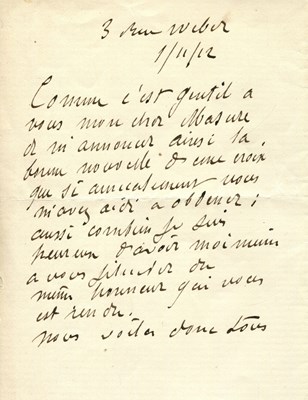 3 Rue Weber
1/11/12
Comme c'est gentil a
vous mon cher Masure
de m'annoncer ainsi la
bonne nouvelle d'une croix
que si amicalement vous
m'avez aidé a obtenir ;
aussi combien je suis
heureux d'avoir moi meme
a vous feliciter du
même honneur qui vous
est rendu.
nous voilà donc tous